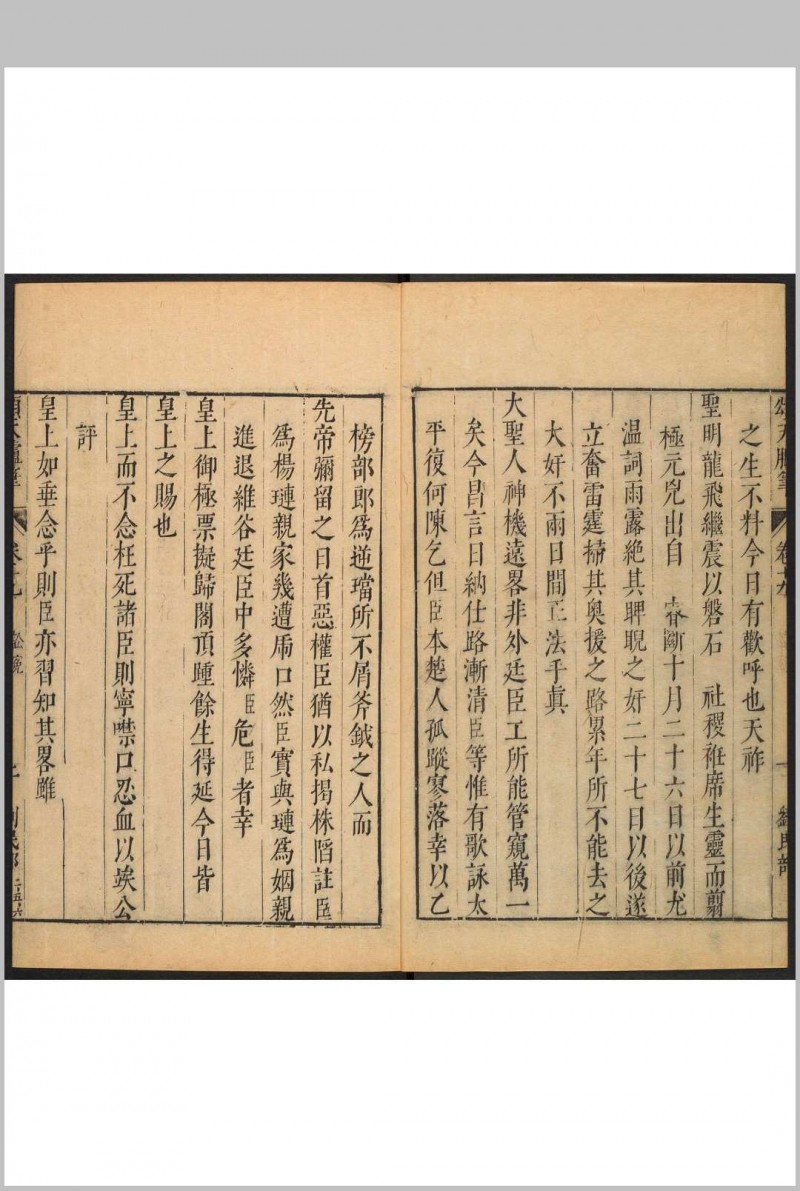 頌天臚筆
卷十九
之生不料今日有歡呼也天祚
聖明龍飛繼震以磐石　社稷袵席生靈而翦
極元兇出自　睿斷十月二十六日以前尤
温詞雨露絶其睥睨之奸二十七日以後遂
立奮雷霆掃其奥援之路累年所不能去之
大奸不兩日間正法乎眞
大聖人神機遠畧非外廷臣工所能管窺萬一
矣今昌言日納仕路漸清臣等惟有歌詠太
平復何陳乞但臣本楚人孤蹤寥落幸以乙
榜部郎爲逆璫所不屑斧鉞之人而
先帝彌留之日首惡權臣猶以私揭株䧟註臣
爲楊璉親家幾遭虎口然臣實與璉爲姻親
進退維谷廷臣中多憐臣危臣者幸
皇上御極票擬歸閣頂踵餘生得延今日皆
皇上之賜也
皇上而不念枉死諸臣則寧噤口忍血以竢公
評
皇上如垂念乎則臣亦習知其畧雖
頌天臚筆
卷十九
訟寃